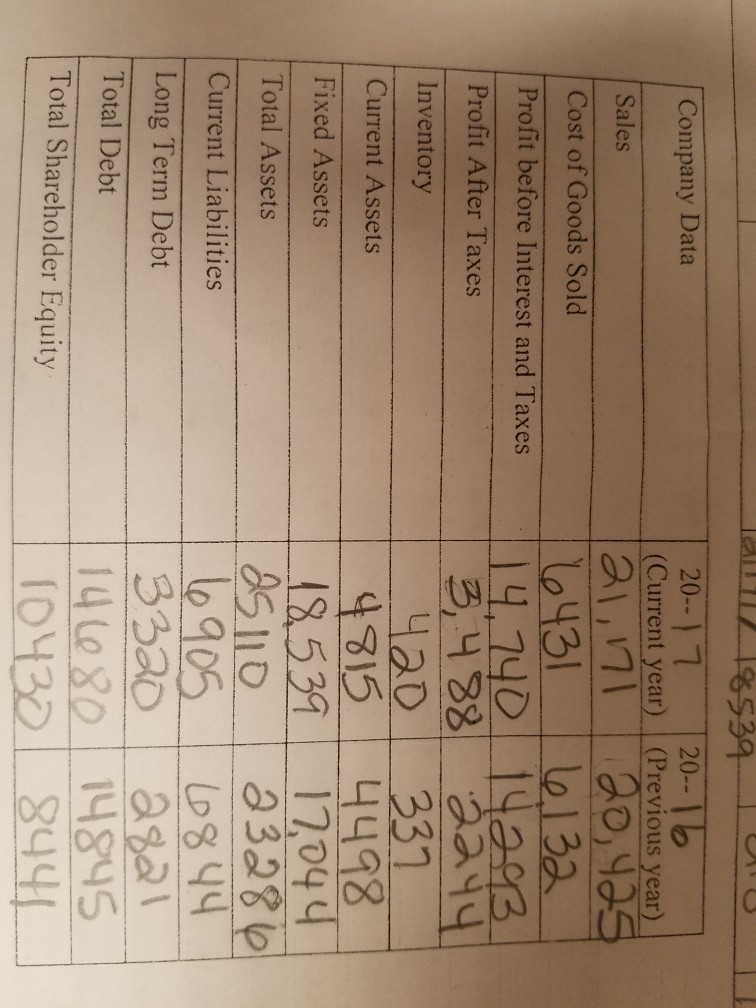 18539
Company Data 20--17 (Current year) 20--16 (Previous year)
Sales 21,171 20,425
Cost of Goods Sold 6431 6,132
Profit before Interest and Taxes 14,740 14293
Profit After Taxes 3,488 2244
Inventory 420 337
Current Assets 4815 4498
Fixed Assets 18,539 17,044
Total Assets 25110 23286
Current Liabilities 6905 6844
Long Term Debt 3320 2821
Total Debt 14680 14845
Total Shareholder Equity 10430 8441